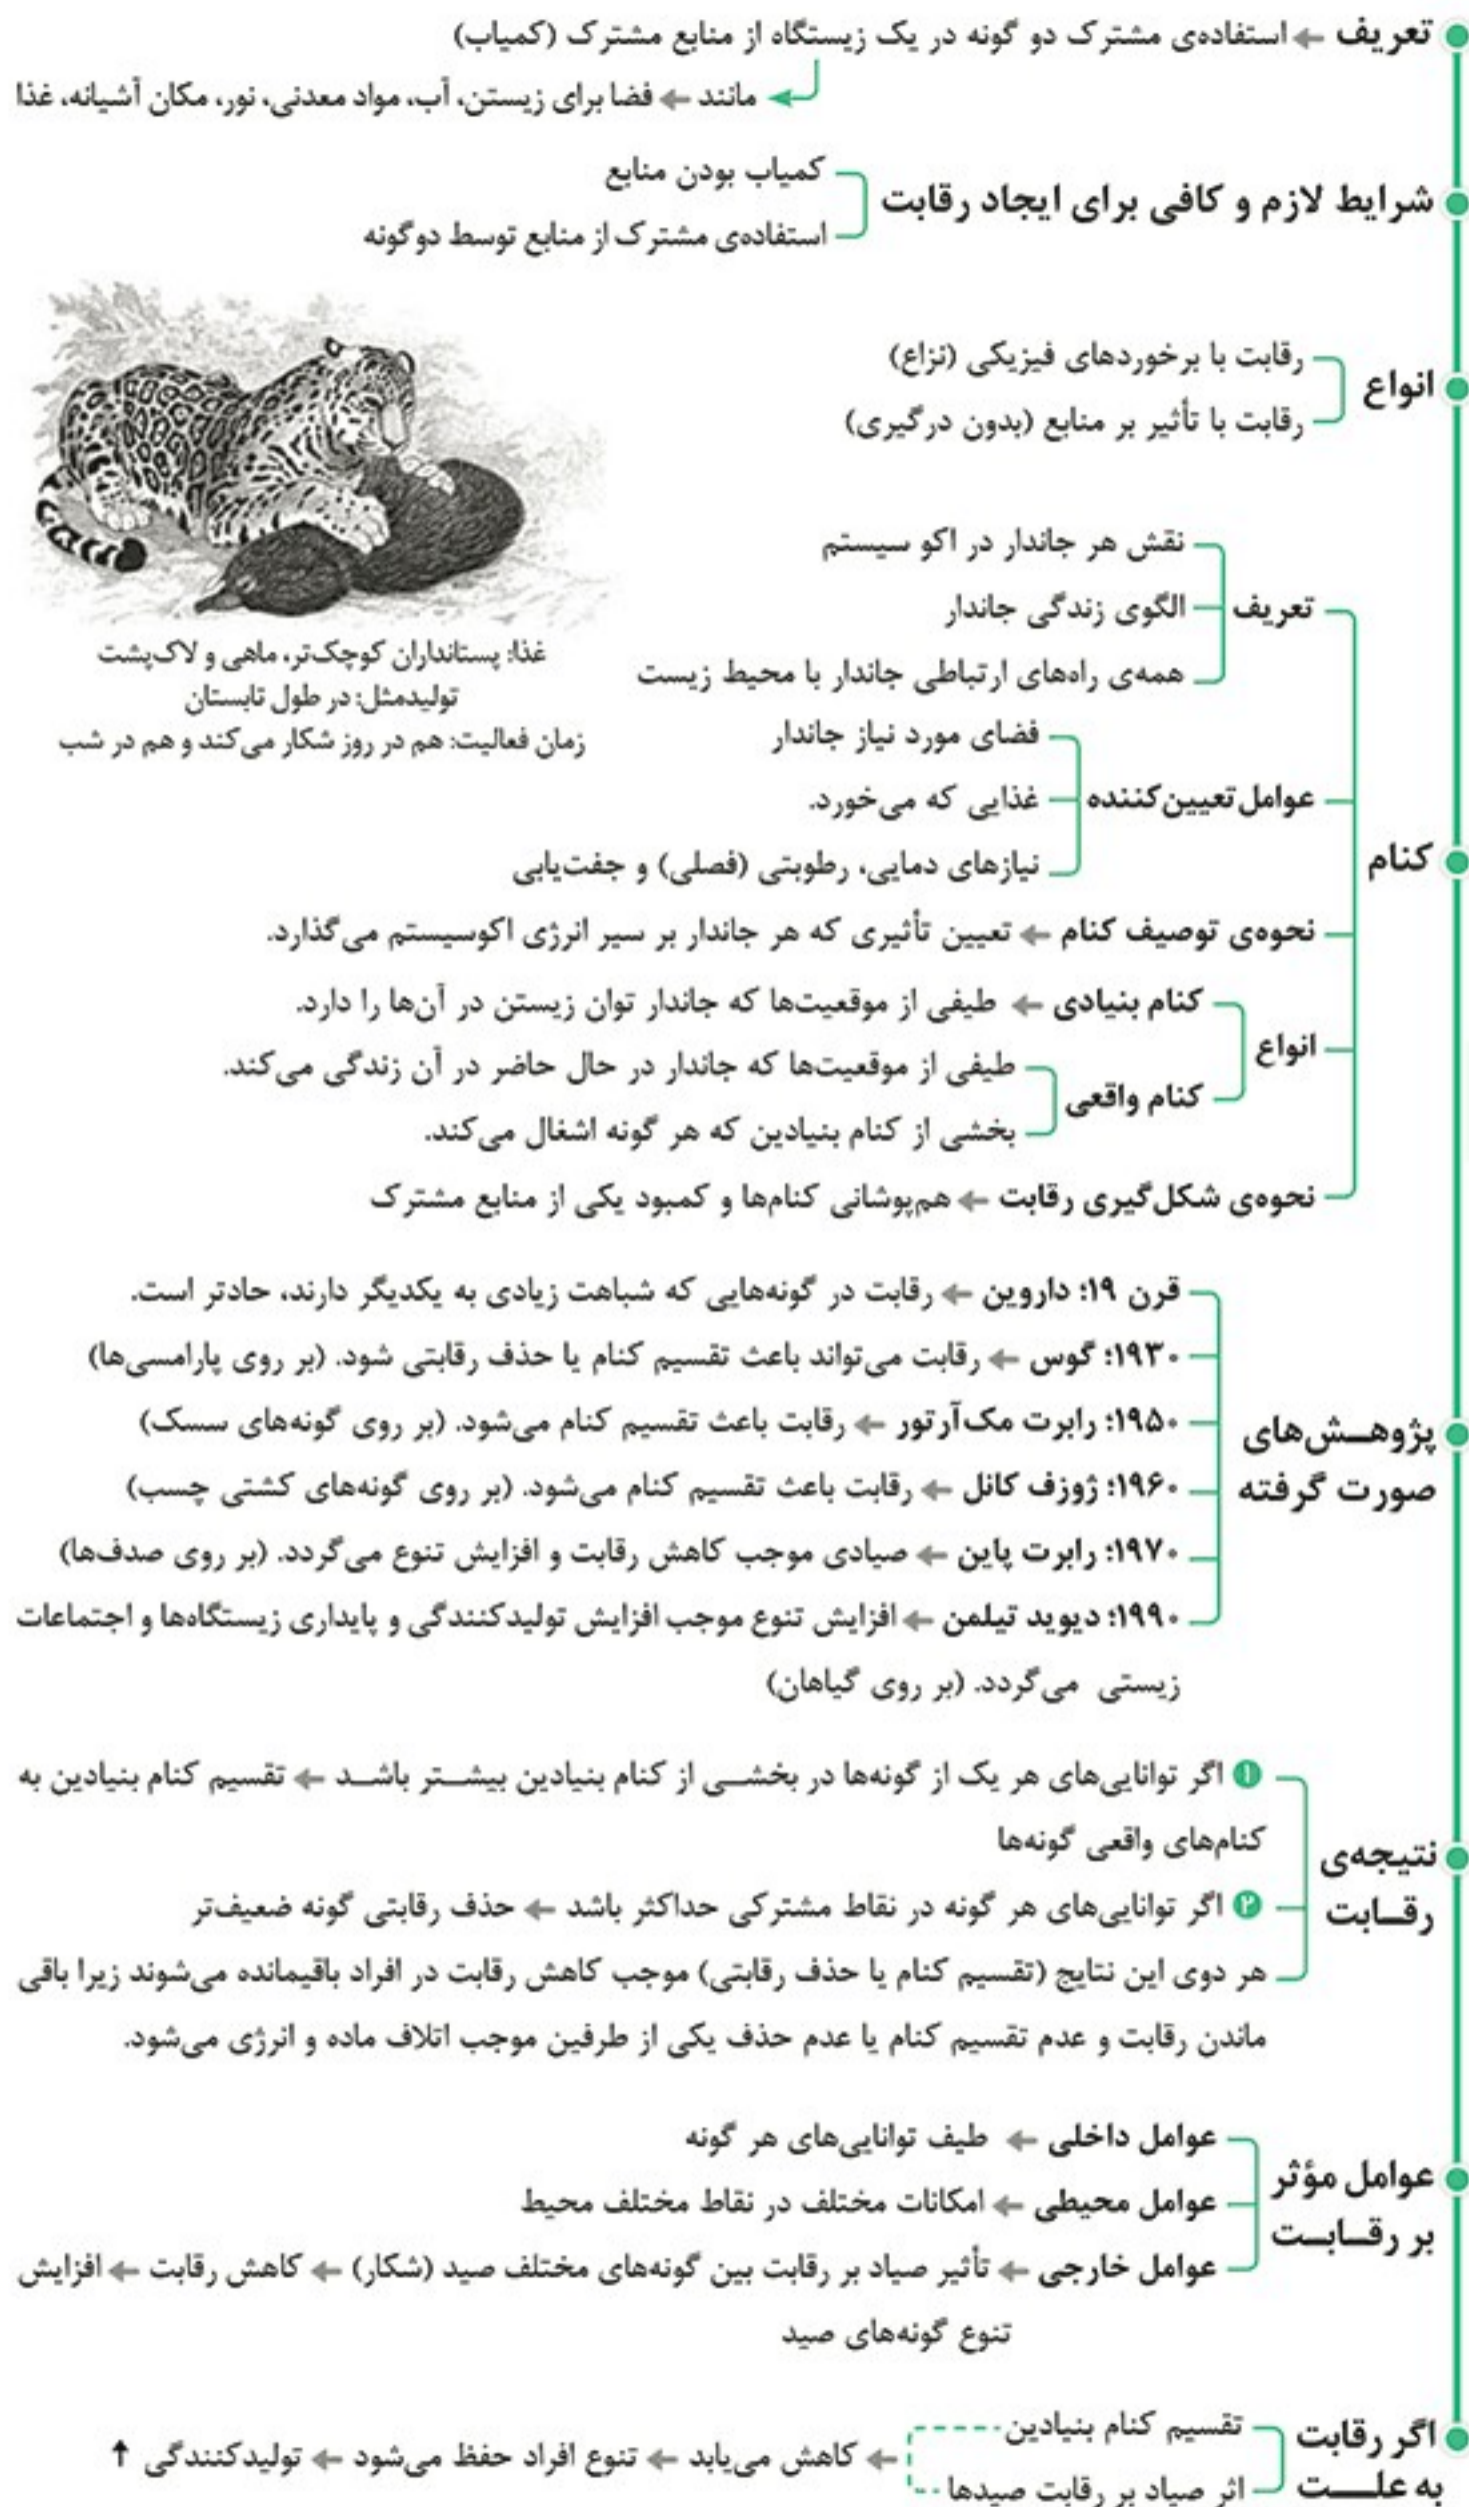 تعریف ← استفاده‌ی مشترک دو گونه در یک زیستگاه از منابع مشترک (کمیاب)
مانند ← فضا برای زیستن، آب، مواد معدنی، نور، مکان آشیانه، غذا
شرایط لازم و کافی برای ایجاد رقابت
کمیاب بودن منابع
استفاده‌ی مشترک از منابع توسط دوگونه
انواع
رقابت با برخوردهای فیزیکی (نزاع)
رقابت با تأثیر بر منابع (بدون درگیری)
غذا: پستانداران کوچک‌تر، ماهی و لاک‌پشت
تولیدمثل: در طول تابستان
زمان فعالیت: هم در روز شکار می‌کند و هم در شب
کنام
تعریف
نقش هر جاندار در اکو سیستم
الگوی زندگی جاندار
همه‌ی راه‌های ارتباطی جاندار با محیط زیست
عوامل تعیین‌کننده
فضای مورد نیاز جاندار
غذایی که می‌خورد.
نیازهای دمایی، رطوبتی (فصلی) و جفت‌یابی
نحوه‌ی توصیف کنام ← تعیین تأثیری که هر جاندار بر سیر انرژی اکوسیستم می‌گذارد.
انواع
کنام بنیادی ← طیفی از موقعیت‌ها که جاندار توان زیستن در آن‌ها را دارد.
کنام واقعی
طیفی از موقعیت‌ها که جاندار در حال حاضر در آن زندگی می‌کند.
بخشی از کنام بنیادین که هر گونه اشغال می‌کند.
نحوه‌ی شکل‌گیری رقابت ← هم‌پوشانی کنام‌ها و کمبود یکی از منابع مشترک
پژوهــش‌های
صورت گرفته
قرن ۱۹؛ داروین ← رقابت در گونه‌هایی که شباهت زیادی به یکدیگر دارند، حادتر است.
۱۹۳۰؛ گوس ← رقابت می‌تواند باعث تقسیم کنام یا حذف رقابتی شود. (بر روی پارامسی‌ها)
۱۹۵۰؛ رابرت مک‌آرتور ← رقابت باعث تقسیم کنام می‌شود. (بر روی گونه‌های سسک)
۱۹۶۰؛ ژوزف کانل ← رقابت باعث تقسیم کنام می‌شود. (بر روی گونه‌های کشتی چسب)
۱۹۷۰؛ رابرت پاین ← صیادی موجب کاهش رقابت و افزایش تنوع می‌گردد. (بر روی صدف‌ها)
۱۹۹۰؛ دیوید تیلمن ← افزایش تنوع موجب افزایش تولیدکنندگی و پایداری زیستگاه‌ها و اجتماعات
زیستی می‌گردد. (بر روی گیاهان)
نتیجه‌ی
رقــابت
۱ اگر توانایی‌های هر یک از گونه‌ها در بخشــی از کنام بنیادین بیشــتر باشــد ← تقسیم کنام بنیادین به
کنام‌های واقعی گونه‌ها
۲ اگر توانایی‌های هر گونه در نقاط مشترکی حداکثر باشد ← حذف رقابتی گونه ضعیف‌تر
هر دوی این نتایج (تقسیم کنام یا حذف رقابتی) موجب کاهش رقابت در افراد باقیمانده می‌شوند زیرا باقی
ماندن رقابت و عدم تقسیم کنام یا عدم حذف یکی از طرفین موجب اتلاف ماده و انرژی می‌شود.
عوامل مؤثر
بر رقــابــت
عوامل داخلی ← طیف توانایی‌های هر گونه
عوامل محیطی ← امکانات مختلف در نقاط مختلف محیط
عوامل خارجی ← تأثیر صیاد بر رقابت بین گونه‌های مختلف صید (شکار) ← کاهش رقابت ← افزایش
تنوع گونه‌های صید
اگر رقابت
به علــــت
تقسیم کنام بنیادین
اثر صیاد بر رقابت صیدها
← کاهش می‌یابد ← تنوع افراد حفظ می‌شود ← تولیدکنندگی ↑